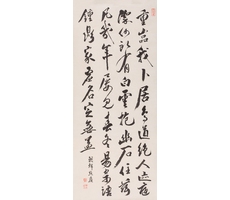 重岩我卜居鳥道絕人迹庭
際何所有白雲抱幽石住茲
凡幾年屢見春冬易寄語
鐘鼎家虛名定無益